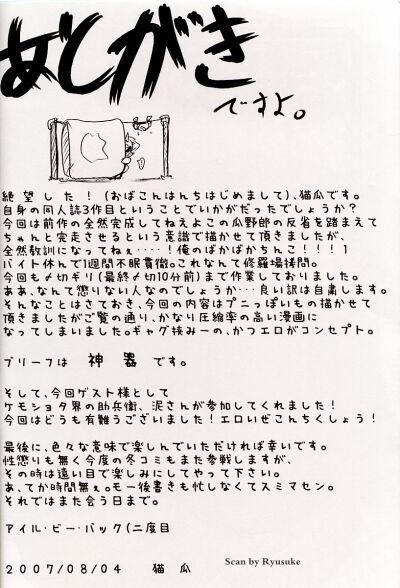 あとがき
ですよ。
絶望した！(おばこんはんちはじめまして)、猫瓜です。
自身の同人誌3作目ということでいかがだったでしょうか？
今回は前作の全然完成してねえよこの瓜野郎の反省を踏まえて
ちゃんと完走させるという意識で描かせて頂きましたが、
全然教訓になってねぇ･･･！俺のばかばかちんこ！！！
バイト休んで1週間不眠貫徹。これなんて修羅場拷問。
今回も〆切ギリ(最終〆切10分前)まで作業しておりました。
ああ、なんて懲りない人なのでしょうか･･･良い訳は自粛します。
そんなことはさておき、今回の内容はプニっぽいもの描かせて
頂きましたがご覧の通り、かなり圧縮率の高い漫画に
なってしまいました。ギャグ挟みーの、かつエロがコンセプト。
ブリーフは 神器 です。
そして、今回ゲスト様として
ケモショタ界の助兵衛、泥さんが参加してくれました！
今回はどうも有難うございました！エロいぜこんちくしょう！
最後に、色々な意味で楽しんでいただければ幸いです。
性懲りも無く今度の冬コミもまた参戦しますが、
その時は遠い目で楽しみにしてやって下さい。
あ、てか時間無ぇ。モー後書きも忙しなくてスミマセン。
それではまた会う日まで。
アイル・ビー・バック(二度目
2007/08/04 猫瓜
Scan by Ryusuke